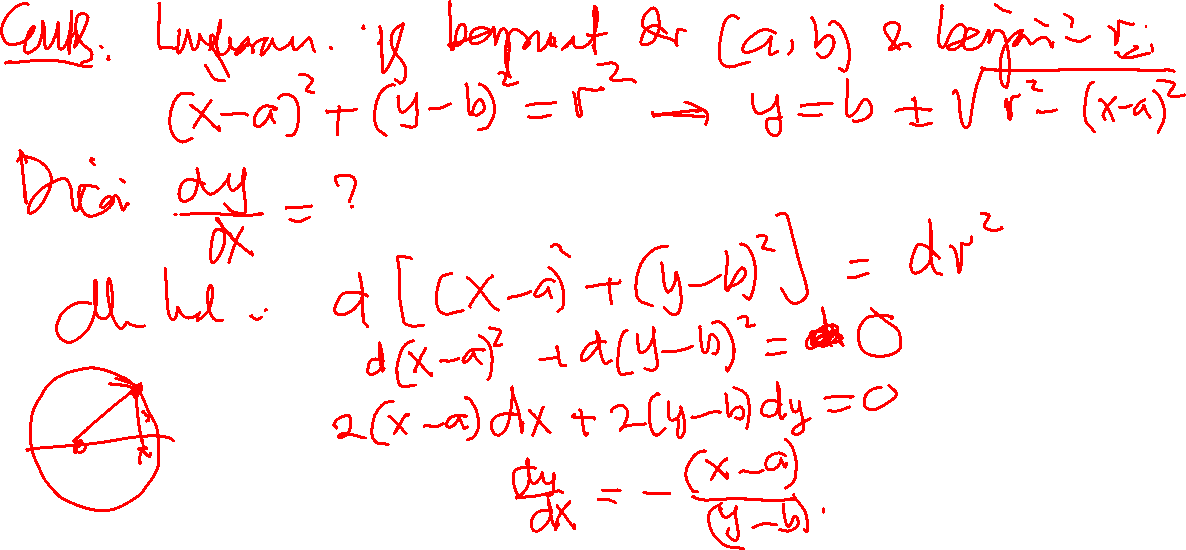 Lingkaran yg berpusat di (a, b) & berjari² r.
(x-a)² + (y-b)² = r² → y = b ± √(r² - (x-a)²)
Dicari dy/dx = ?
d[(x-a)² + (y-b)²] = dr²
d(x-a)² + d(y-b)² = 0
2(x-a)dx + 2(y-b)dy = 0
dy/dx = - (x-a)/(y-b).